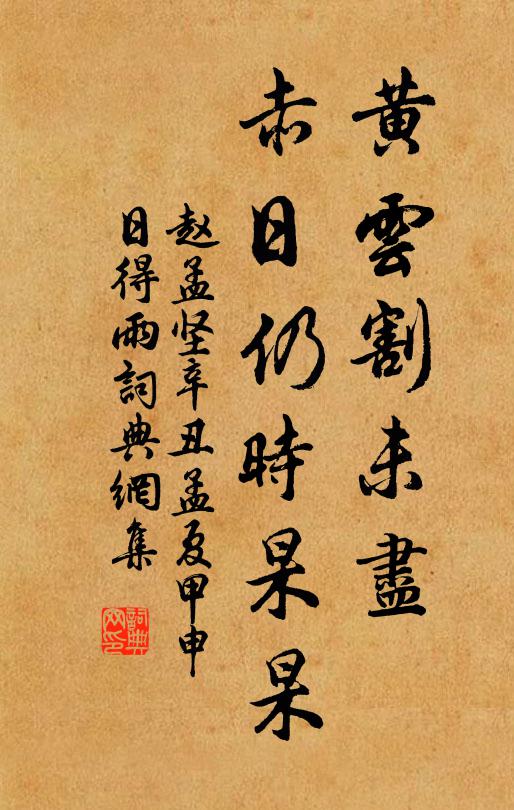 黃雲割未盡
赤日仍時杲杲
赵孟坚辛丑孟夏甲申
日得雨詞典網集
詞典
网印